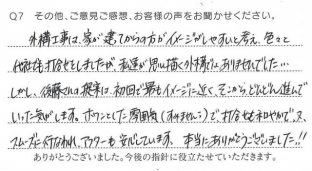 Q7 その他、ご意見ご感想、お客様の声をお聞かせください。
外構工事は、家が建ってからの方がイメージがしやすいと考え、色々と
他社も打合せをしましたが、私達が思い描く外構ではありませんでした…
しかし、後藤さんの提案は、初回で最もイメージに近く、そこからどんどん進んで
いった気がします。ポワンとした雰囲気(すみません)で、打合せも和やかで、ス
スムーズに行なわれ、アフターも安心しています。本当にありがとうございました!!
ありがとうございました。今後の指針に役立たせていただきます。